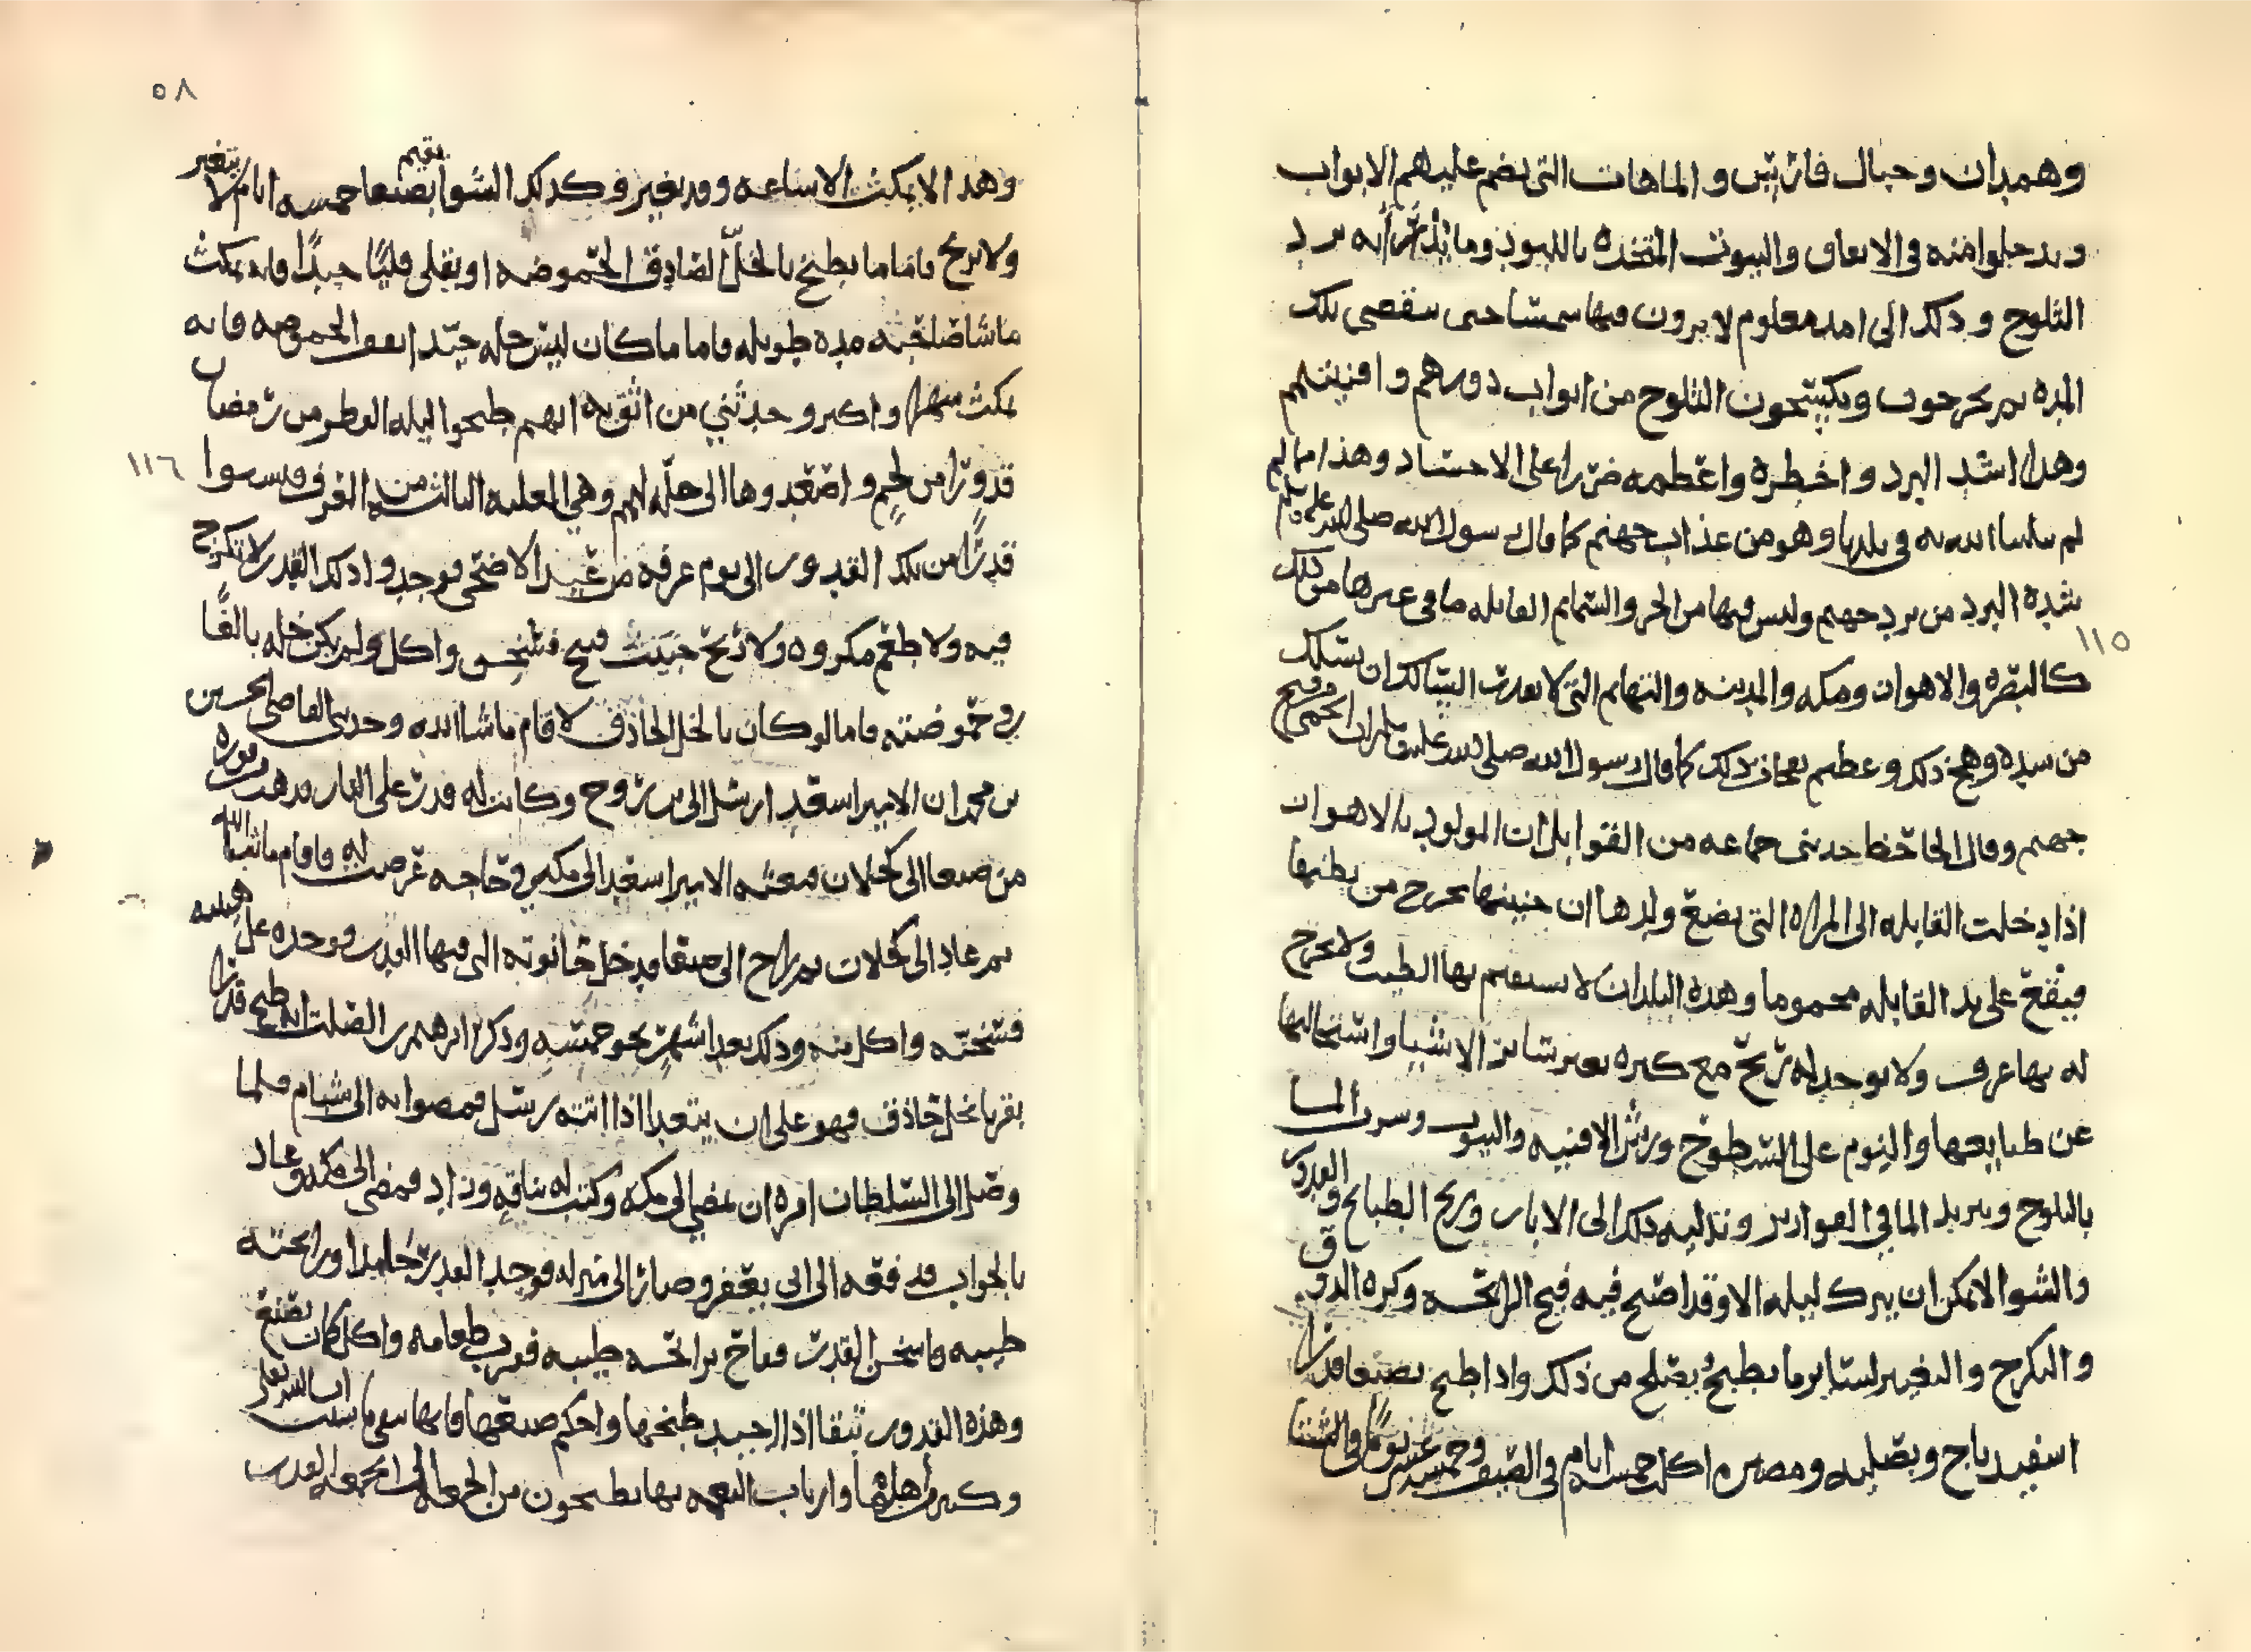 وهمدان وجبال فارس والماهات التي يضم عليهم الابواب
ويدخلوا منه في الانفاق والبيوت المتخذة باللبود وما يذكر انه برد
الثلوج وذلك الى امد معلوم لا يرون فيها شمسا حتى ينقضي تلك
المده ثم يخرجون ويكتسحون الثلوج من ابواب دورهم وافنيتهم
وهذا اشد البرد واخطره واعظمه ضررا على الاجساد وهذا
وهو من عذاب جهنم كما قال رسول الله صلى الله عليه وسلم
شده البرد من برد جهنم وليس فيها من الحر والسمايم القاتله ما في غيرها من تلك
١١٥
كالبصره والاهواز ومكه والمدينه والتهايم التي لا يقدر السالك ان يسلك
من وهج ذلك وعظيم كما قال رسول الله صلى الله عليه وسلم ان الحمى من فيح
جهنم وقال الجاحظ حدثني جماعه من القوابل ان المولود بالاهواز
اذا دخلت القابله الى المراه التي يضع ولدها ان جنينها يخرج من بطنها
فيقع على يد القابله محموما وهذه البلدان لا يستقيم بها الطيب ولا يخرج
له بها عرف ولا يوجد له ريح مع كثره تغير ساير الاشيا واستحالتها
عن طبايعها والنوم على السطوح ورش الافنيه والبيوت وشرب الما
بالثلوج وتبريد الما في القوارير وتدليه ذلك الى الابار وريح الطبايخ والقدور
والشوا لا يمكن ان يترك ليله الا وقد اصبح فيه قبح الرائحه وكره الذوق
والتكرج والتغير لساير ما يطبخ ويصلح من ذلك واذا طبخ بصنعا قدرا
اسفيدباج وبصليه ومضيره اكلت خمسه ايام في الصيف وخمسه عشر يوما في الشتا
٥٨
وهذا لا يمكث الا ساعه وقد تغير وكذلك الشوا يقيم بصنعا خمسه ايام لا يتغير
ولا يريح فاما ما يطبخ بالخل الصادق الحموضه او يقلى قليا جيدا فانه يمكث
ما شا صاحبه مده طويله فاما ما كان ليس خله جيد الحموضه فانه
يمكث شهرا واكبر وحدثني من اثق به انهم طبخوا ليله الفطر من رمضان
١١٦
قدورا من لحم واصعدوها الى حله لهم وهي المعليه الثالث من الغرف فنسوا
قدرا من تلك القدور الى يوم عرفه من عيد الاضحى فوجدوا ذلك القدر لا تكرج
فيه ولا طعم مكروه ولا ريح خبيث قبح فسخن واكل ولم يكن خله بالغا
في حموضته فاما لو كان بالخل الحاذق لاقام ما شا الله وحدثني القاضي الحسين
بن محمد ان الامير اسعد ارسل الى وكانت له قدر على النار قد هدرت
من صنعا الى كحلان فبعثه الامير اسعد الى مكه في حاجه عرضت له فاقام ما شا الله
ثم عاد الى كحلان ثم راح الى صنعا فدخل حانوته التي فيها القدر فوجده على
فسخنه واكل منه وذلك بعد اشهر نحو خمسه وذكر ابرهيم بن الصلت انه طبخ قدرا
بقر بخل حاذق فهو على ان يتغدا اذا اتته رسل فمضوا به الى شبام فلما
وصل الى السلطان امره ان يمضي الى مكه وكتب له بناقه وزاد فمضى الى مكه وعاد
بالجواب فدفعه الى ابي يعفر وصار الى منزله فوجد القدر جامدا ورائحته
طيبه فاسخن القدر ففاح برائحه طيبه فقرب طعامه واكل كما كان يصنع
وهذه القدور تبقا اذا اجيد طبخها واحكم صنعتها
وكثير من اهلها وارباب النعمه بها يطبخون من الجمعه الى الجمعه القدر